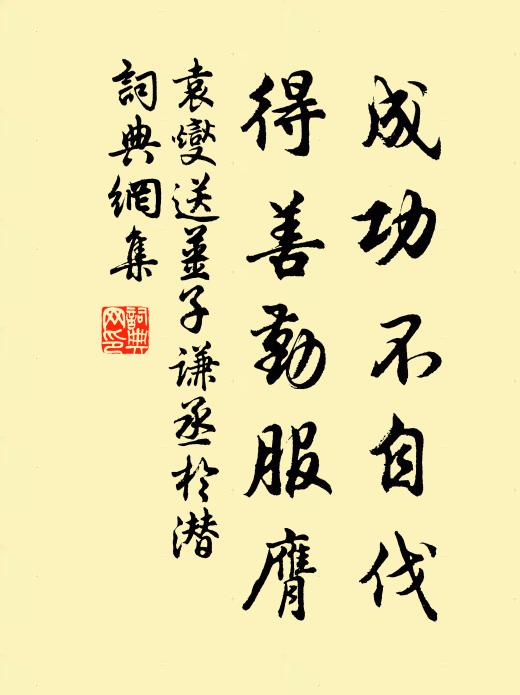 成功不自伐
得善勤服膺
袁燮送姜子谦丞於潜
詞典網集
詞典網印